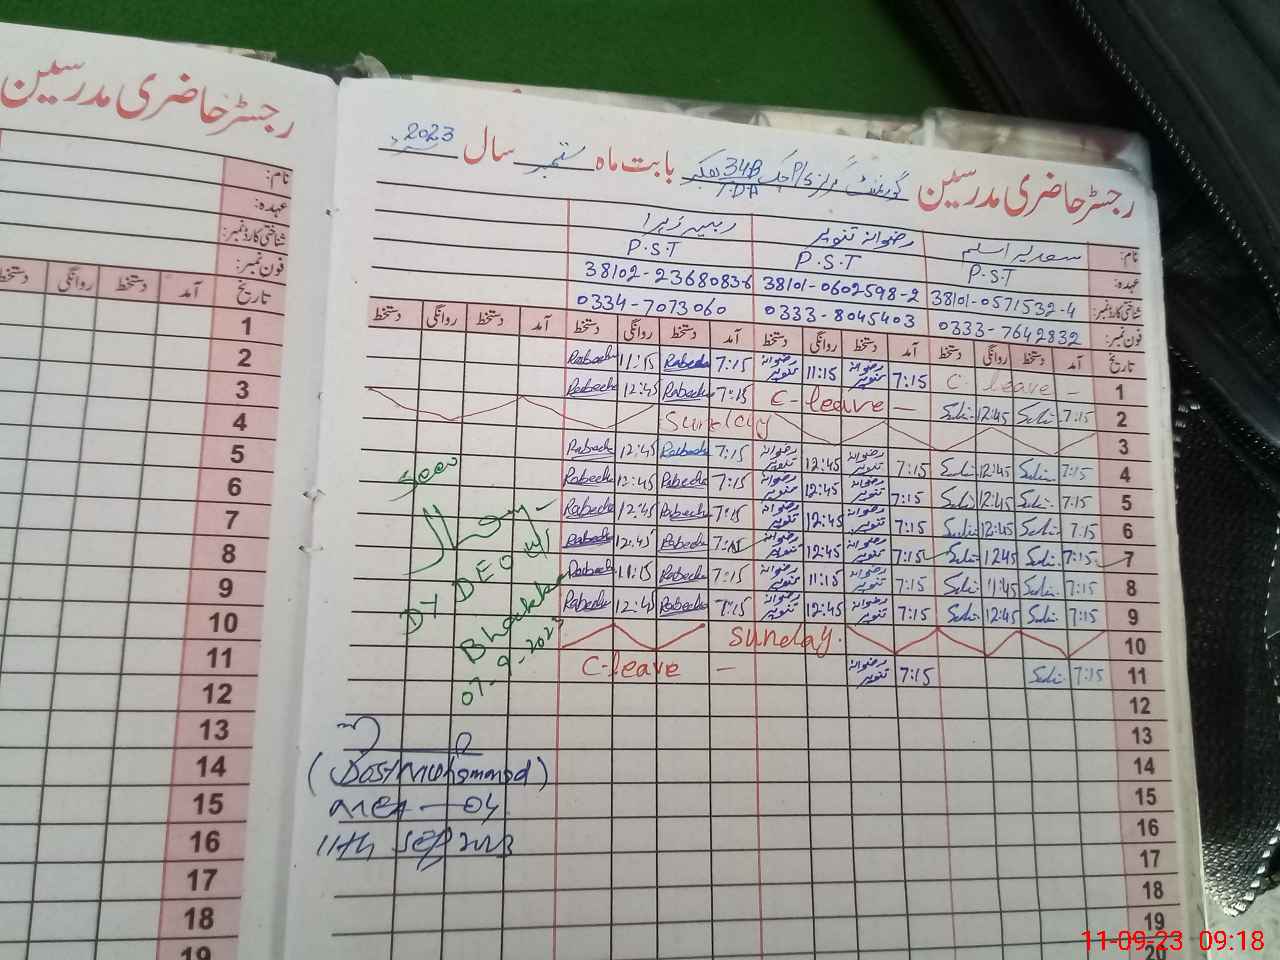 رجسٹر حاضری مدرسین
نام:
عہدہ:
شناختی کارڈ نمبر:
فون نمبر:
تاریخ آمد دستخط روانگی دستخط
1
2
3
4
5
6
7
8
9
10
11
12
13
14
15
16
17
18
19
رجسٹر حاضری مدرسین گورنمنٹ P/S چک 34B TDA بھکر بابت ماہ ستمبر سال 2023
نام: سعدیہ اسلم رضوانہ تنویر ربیعہ زہرا
عہدہ: P.S.T P.S.T P.S.T
شناختی کارڈ نمبر: 38101-0571532-4 38101-0602598-2 38102-2368083-6
فون نمبر: 0333-7642832 0333-8045403 0334-7073060
تاریخ آمد دستخط روانگی دستخط آمد دستخط روانگی دستخط آمد دستخط روانگی دستخط آمد دستخط روانگی دستخط
1 C. leave - 7:15 رضوانہ تنویر 11:15 رضوانہ تنویر 7:15 11:15
2 7:15 12:45 C-leave - 7:15 12:45
3 Sunday
4 7:15 12:45 7:15 رضوانہ تنویر 12:45 رضوانہ تنویر 7:15 12:45
5 7:15 12:45 7:15 رضوانہ تنویر 12:45 رضوانہ تنویر 7:15 12:45
6 7:15 12:45 7:15 رضوانہ تنویر 12:45 رضوانہ تنویر 7:15 12:45
7 7:15 12:45 7:15 رضوانہ تنویر 12:45 رضوانہ تنویر 7:15 12:45
8 7:15 11:45 7:15 رضوانہ تنویر 11:15 رضوانہ تنویر 7:15 11:15
9 7:15 12:45 7:15 رضوانہ تنویر 12:45 رضوانہ تنویر 7:15 12:45
10 Sunday.
11 7:15 7:15 رضوانہ تنویر C-leave -
12
13
14
15
16
17
18
19
20
Seen
DY DEO
Bhakkar
07-9-2023
(Dost Muhammad)
MEA-04
11th Sep 2023
11-09-23 09:18